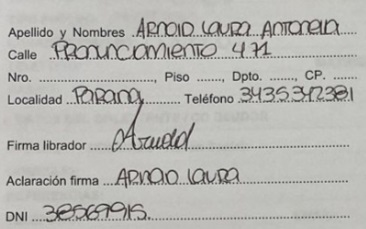 Apellido y Nombres ARNOLD LAURA ANTONELA
Calle PRONUNCIAMIENTO 471
Nro. ..............., Piso ......, Dpto. ......, CP. ......
Localidad PARANA Teléfono 3435342381
Firma librador Arnold
Aclaración firma ARNOLD LAURA
DNI 38569915